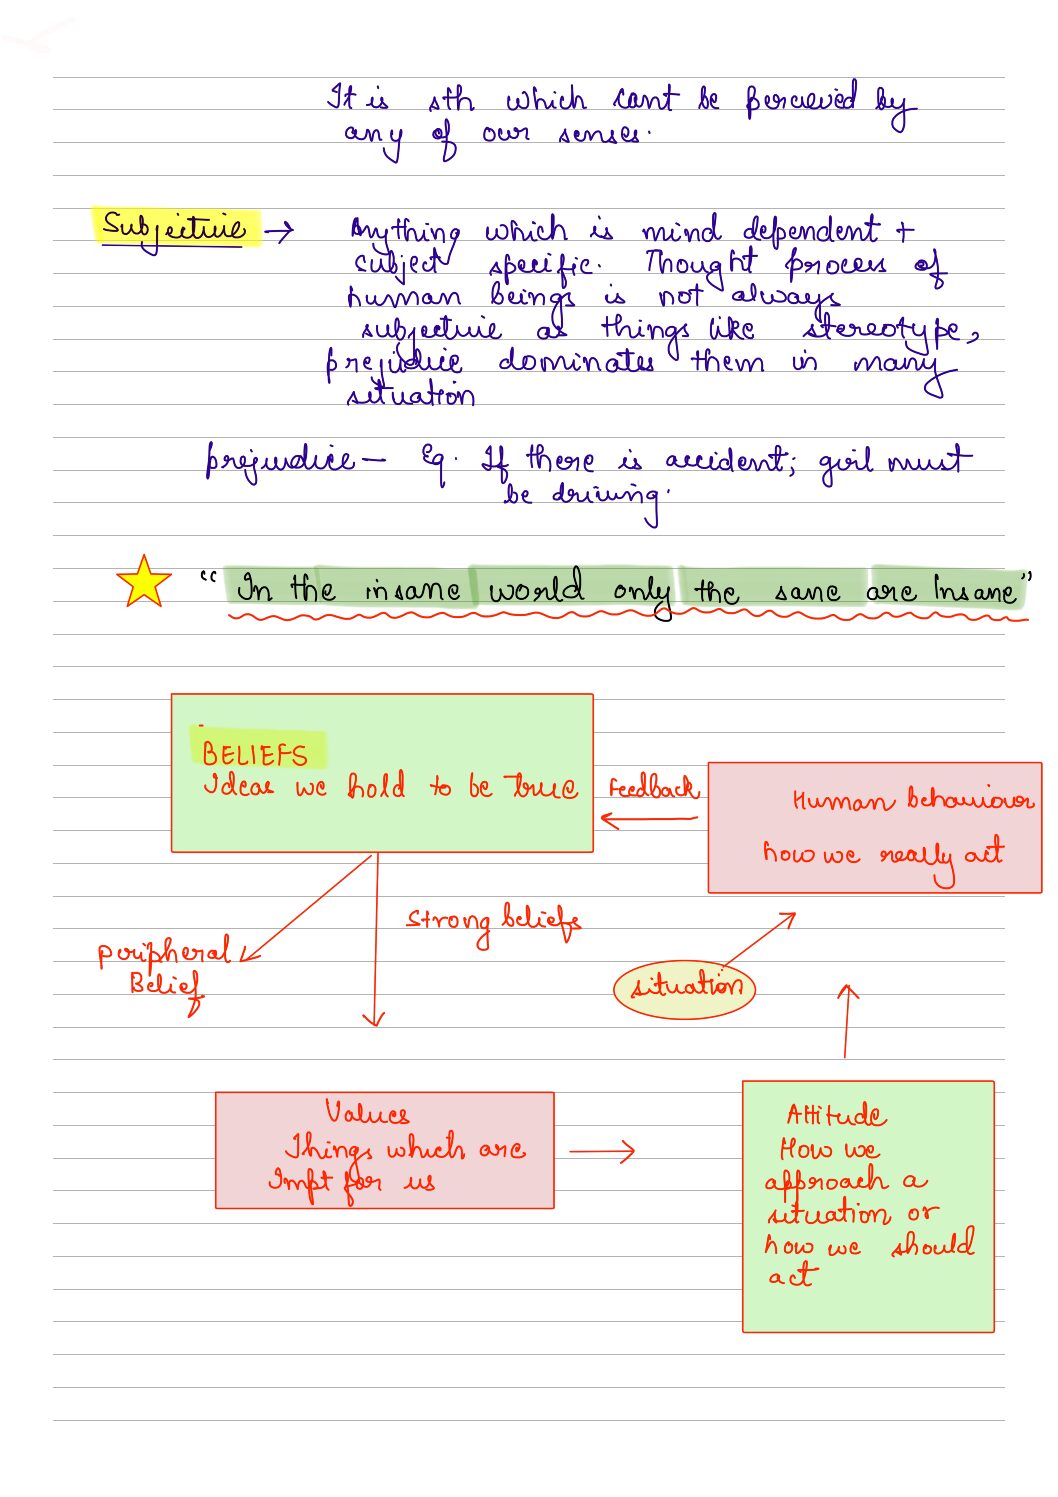 It is sth which cant be percieved by
any of our senses.
Subjective → Anything which is mind dependent +
subject specific. Thought process of
human beings is not always
subjective as things like stereotype,
prejudice dominates them in many
situation
prejudice — Eg. If there is accident; girl must
be driving.
"In the insane world only the sane are Insane"
BELIEFS
Ideas we hold to be true
Feedback
Human behaviour
how we really act
Strong beliefs
peripheral
Belief
situation
Values
Things which are
Impt for us
Attitude
How we
approach a
situation or
how we should
act